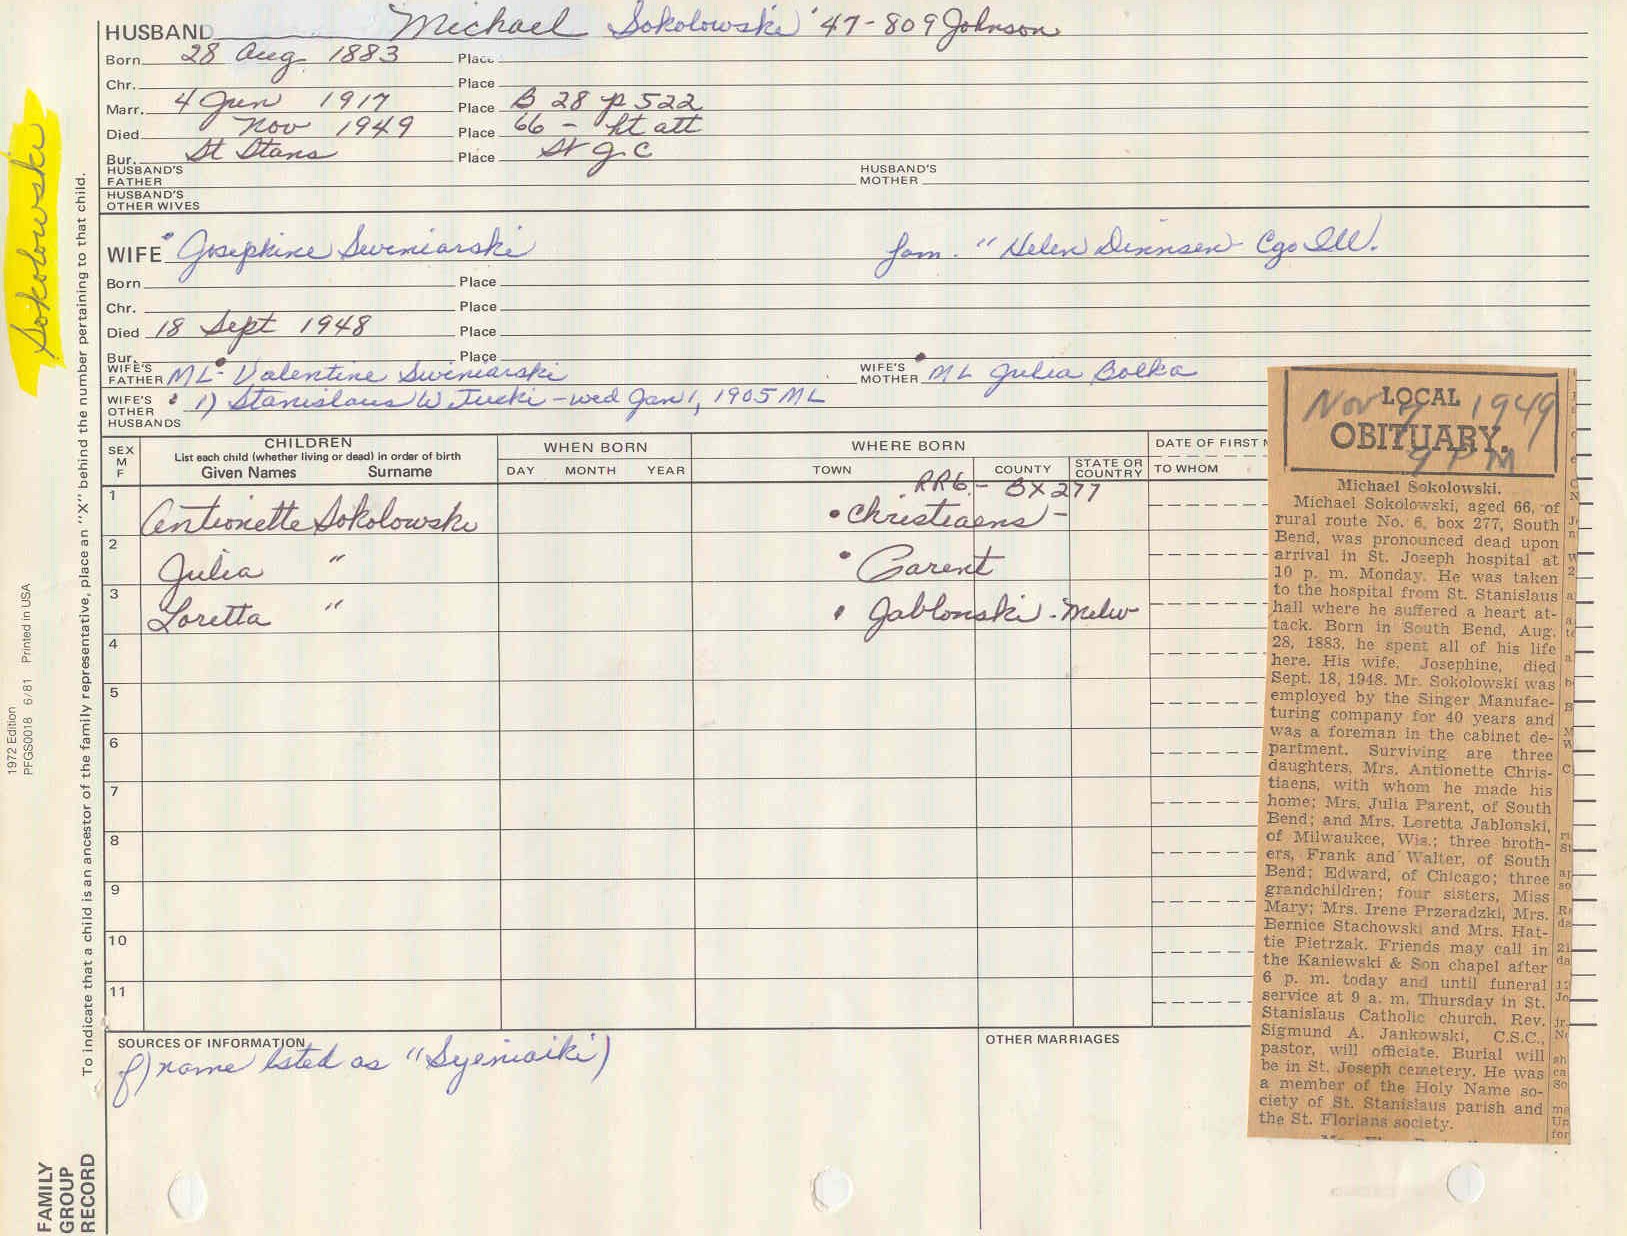 HUSBAND Michael Sokolowski '47-809 Johnson
Born 28 Aug 1883 Place
Chr. Place
Marr. 4 Jun 1917 Place B 28 p 522
Died Nov 1949 Place 66 - ht att
Bur. St Stans Place St J. C
HUSBAND'S FATHER HUSBAND'S MOTHER
HUSBAND'S OTHER WIVES
WIFE Josephine Swiniarski fam. "Helen Dennsen Cgo Ill.
Born Place
Chr. Place
Died 18 Sept 1948 Place
Bur. Place
WIFE'S FATHER ML- Valentine Swiniarski WIFE'S MOTHER ML Julia Bolka
WIFE'S OTHER HUSBANDS 1) Stanislaus W. Tucki - wed Jan 1, 1905 ML
SEX M F CHILDREN WHEN BORN WHERE BORN DATE OF FIRST M
List each child (whether living or dead) in order of birth
Given Names Surname DAY MONTH YEAR TOWN COUNTY STATE OR COUNTRY TO WHOM
RR6.- BX 277
1 Antionette Sokolowski Christiaens -
2 Julia " Parent
3 Loretta " Jablonski - Milw
4
5
6
7
8
9
10
11
SOURCES OF INFORMATION OTHER MARRIAGES
f) name listed as "Syeniaiki)
Sokolowski
To indicate that a child is an ancestor of the family representative, place an "X" behind the number pertaining to that child.
1972 Edition
PFGS0018 6/81 Printed in USA
FAMILY
GROUP
RECORD
LOCAL
OBITUARY.
Nov 1949
PM
Michael Sokolowski.
Michael Sokolowski, aged 66, of
rural route No. 6, box 277, South
Bend, was pronounced dead upon
arrival in St. Joseph hospital at
10 p. m. Monday. He was taken
to the hospital from St. Stanislaus
hall where he suffered a heart at-
tack. Born in South Bend, Aug.
28, 1883, he spent all of his life
here. His wife, Josephine, died
Sept. 18, 1948. Mr. Sokolowski was
employed by the Singer Manufac-
turing company for 40 years and
was a foreman in the cabinet de-
partment. Surviving are three
daughters, Mrs. Antionette Chris-
tiaens, with whom he made his
home; Mrs. Julia Parent, of South
Bend; and Mrs. Loretta Jablonski,
of Milwaukee, Wis.; three broth-
ers, Frank and Walter, of South
Bend; Edward, of Chicago; three
grandchildren; four sisters, Miss
Mary; Mrs. Irene Przeradzki, Mrs.
Bernice Stachowski and Mrs. Hat-
tie Pietrzak. Friends may call in
the Kaniewski & Son chapel after
6 p. m. today and until funeral
service at 9 a. m. Thursday in St.
Stanislaus Catholic church. Rev.
Sigmund A. Jankowski, C.S.C.,
pastor, will officiate. Burial will
be in St. Joseph cemetery. He was
a member of the Holy Name so-
ciety of St. Stanislaus parish and
the St. Florians society.